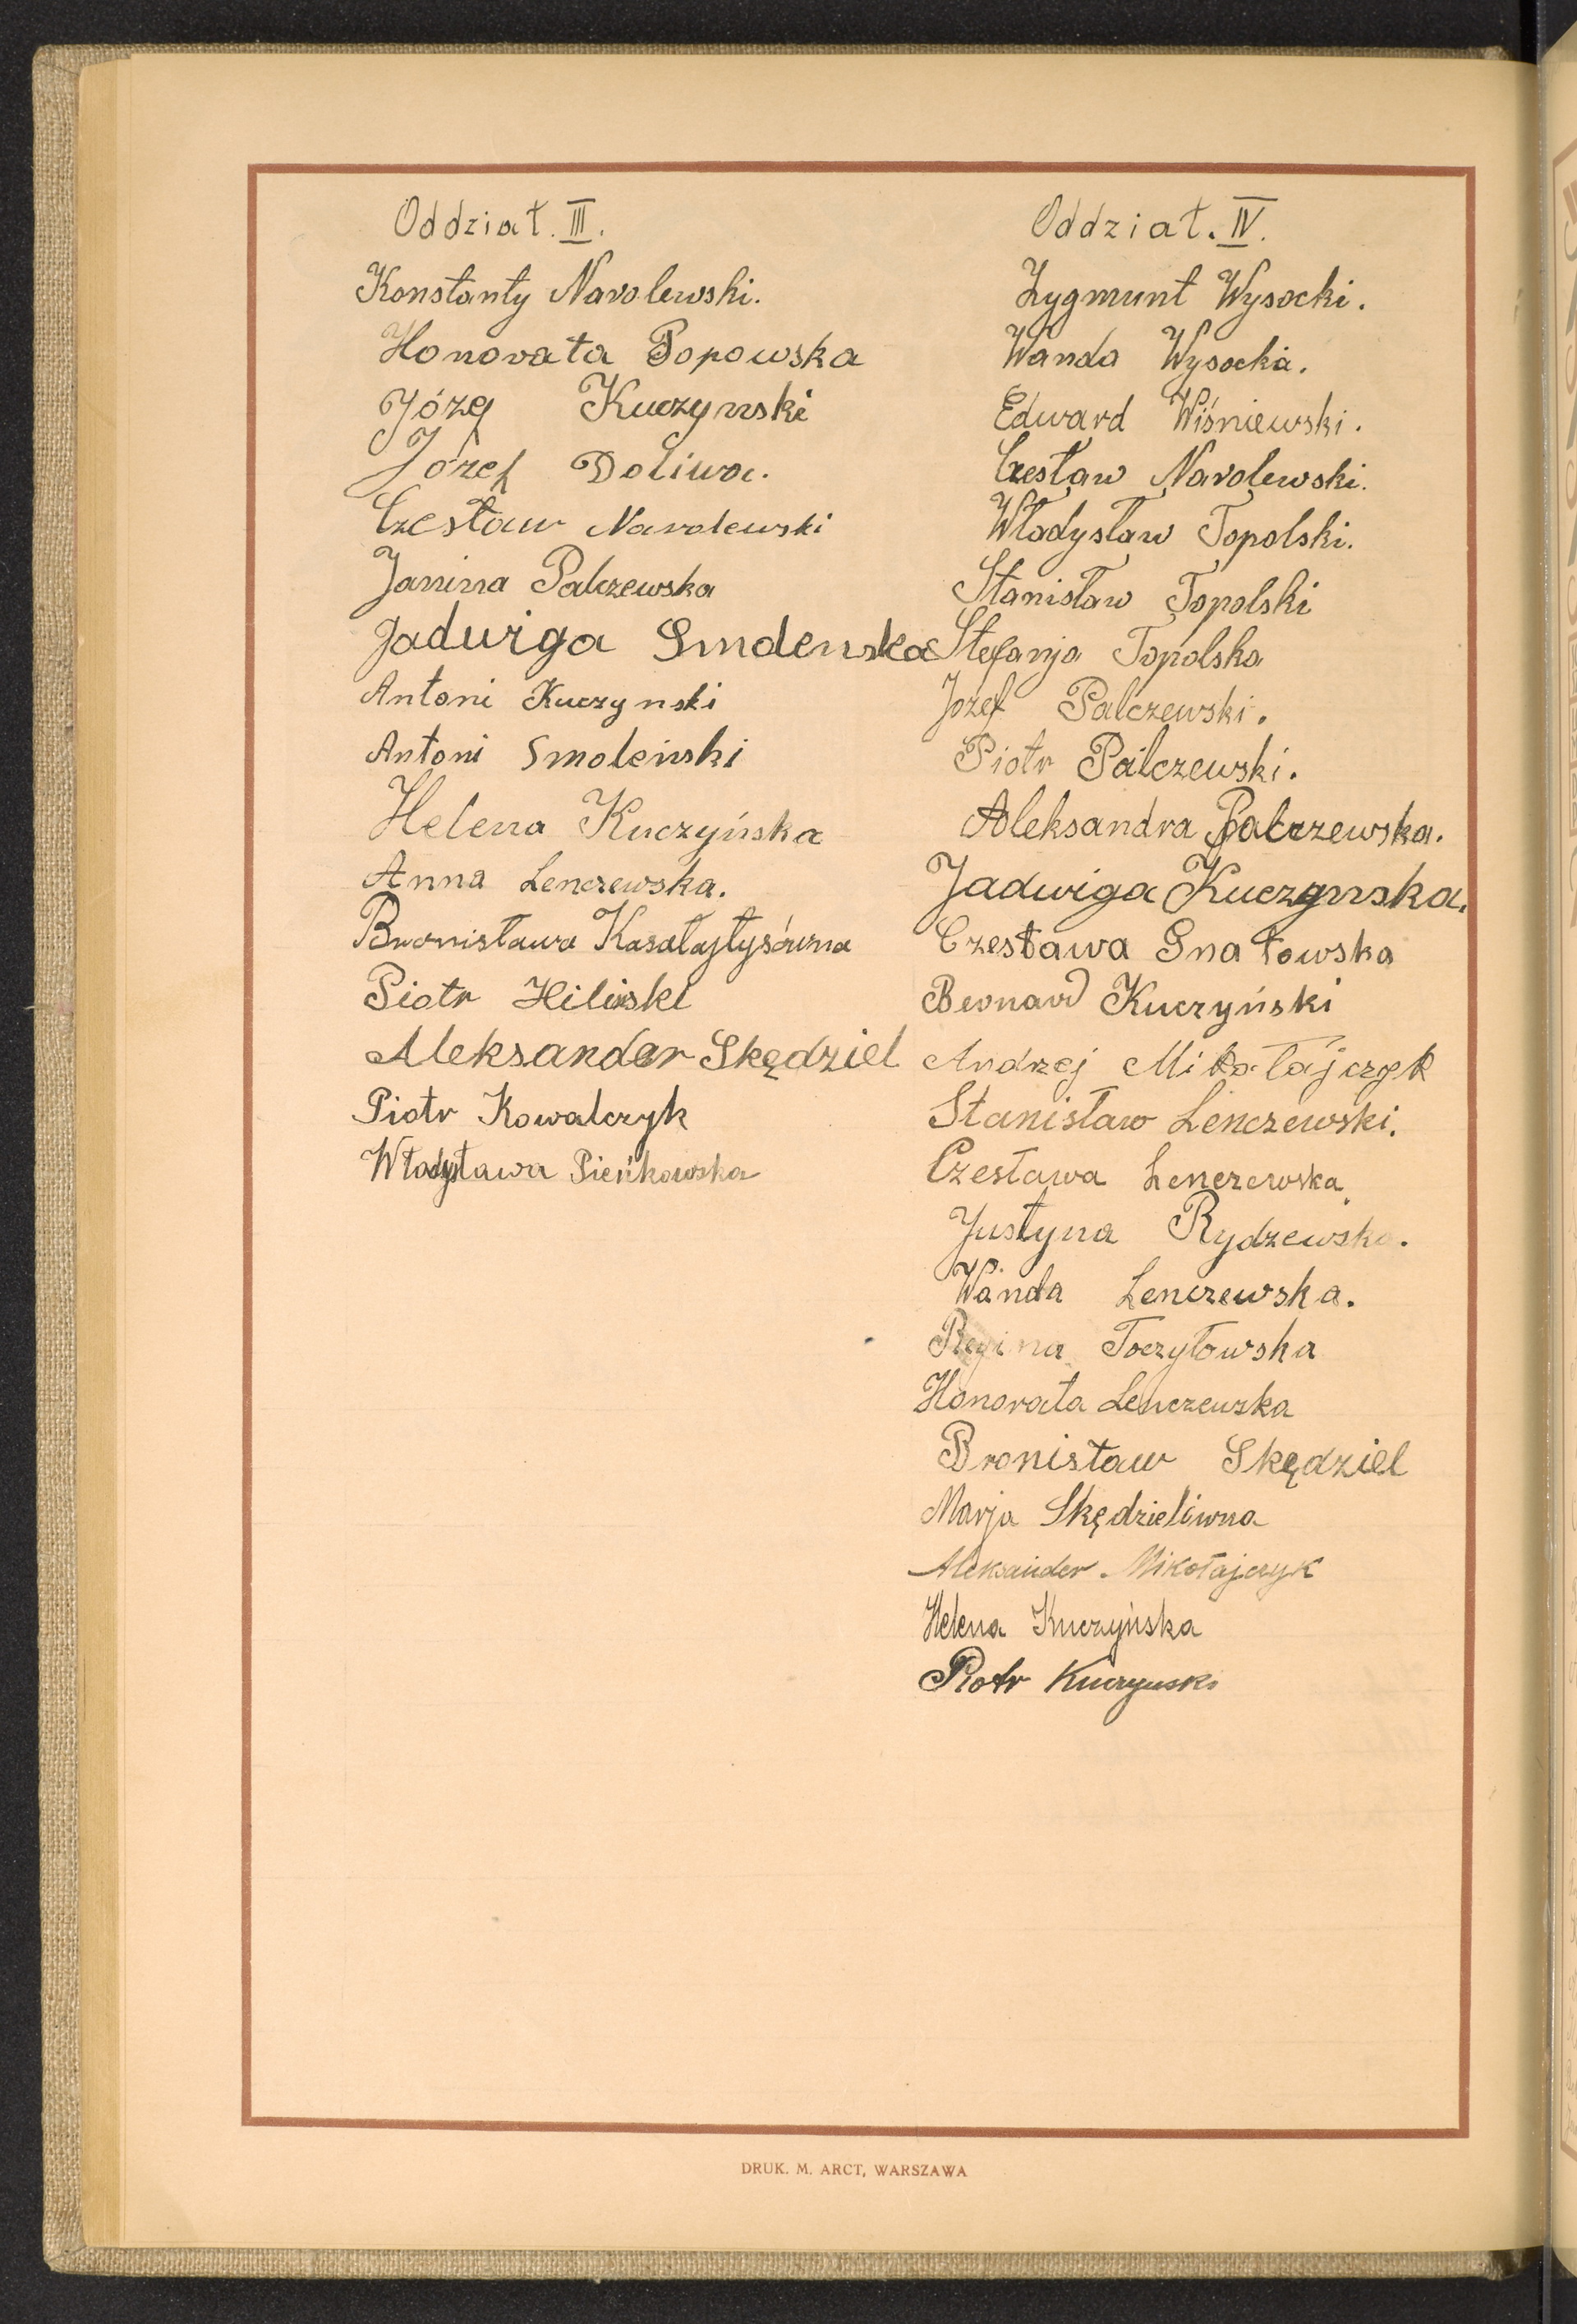 Oddział. III.
Konstanty Narolewski.
Honorata Popowska
Józef Kuczynski
Józef Doliwa.
Czesław Narolewski
Janina Palczewska
Jadwiga Smolenska
Antoni Kuczynski
Antoni Smoleński
Helena Kuczyńska
Anna Lenczewska.
Bronisława
Piotr Hiliński
Aleksander Skędziel
Piotr Kowalczyk
Władysława Pieńkowska
Oddział. IV.
Zygmunt Wysocki.
Wanda Wysocka.
Edward Wiśniewski.
Czesław Narolewski.
Władysław Topolski.
Stanisław Topolski
Stefanja Topolska
Jozef Palczewski.
Piotr Palczewski.
Aleksandra Palczewska.
Jadwiga Kuczynska.
Czesława Gnatowska
Bernard Kuczyński
Andrzej Mikołajczyk
Stanisław Lenczewski.
Czesława Lenczewska.
Justyna Rydzewska.
Wanda Lenczewska.
Regina Toczyłowska
Honorata Lenczewska
Bronisław Skędziel
Marja Skędzielówna
Aleksander Mikołajczyk
Helena Kuczyńska
Piotr Kuczynski
DRUK. M. ARCT, WARSZAWA